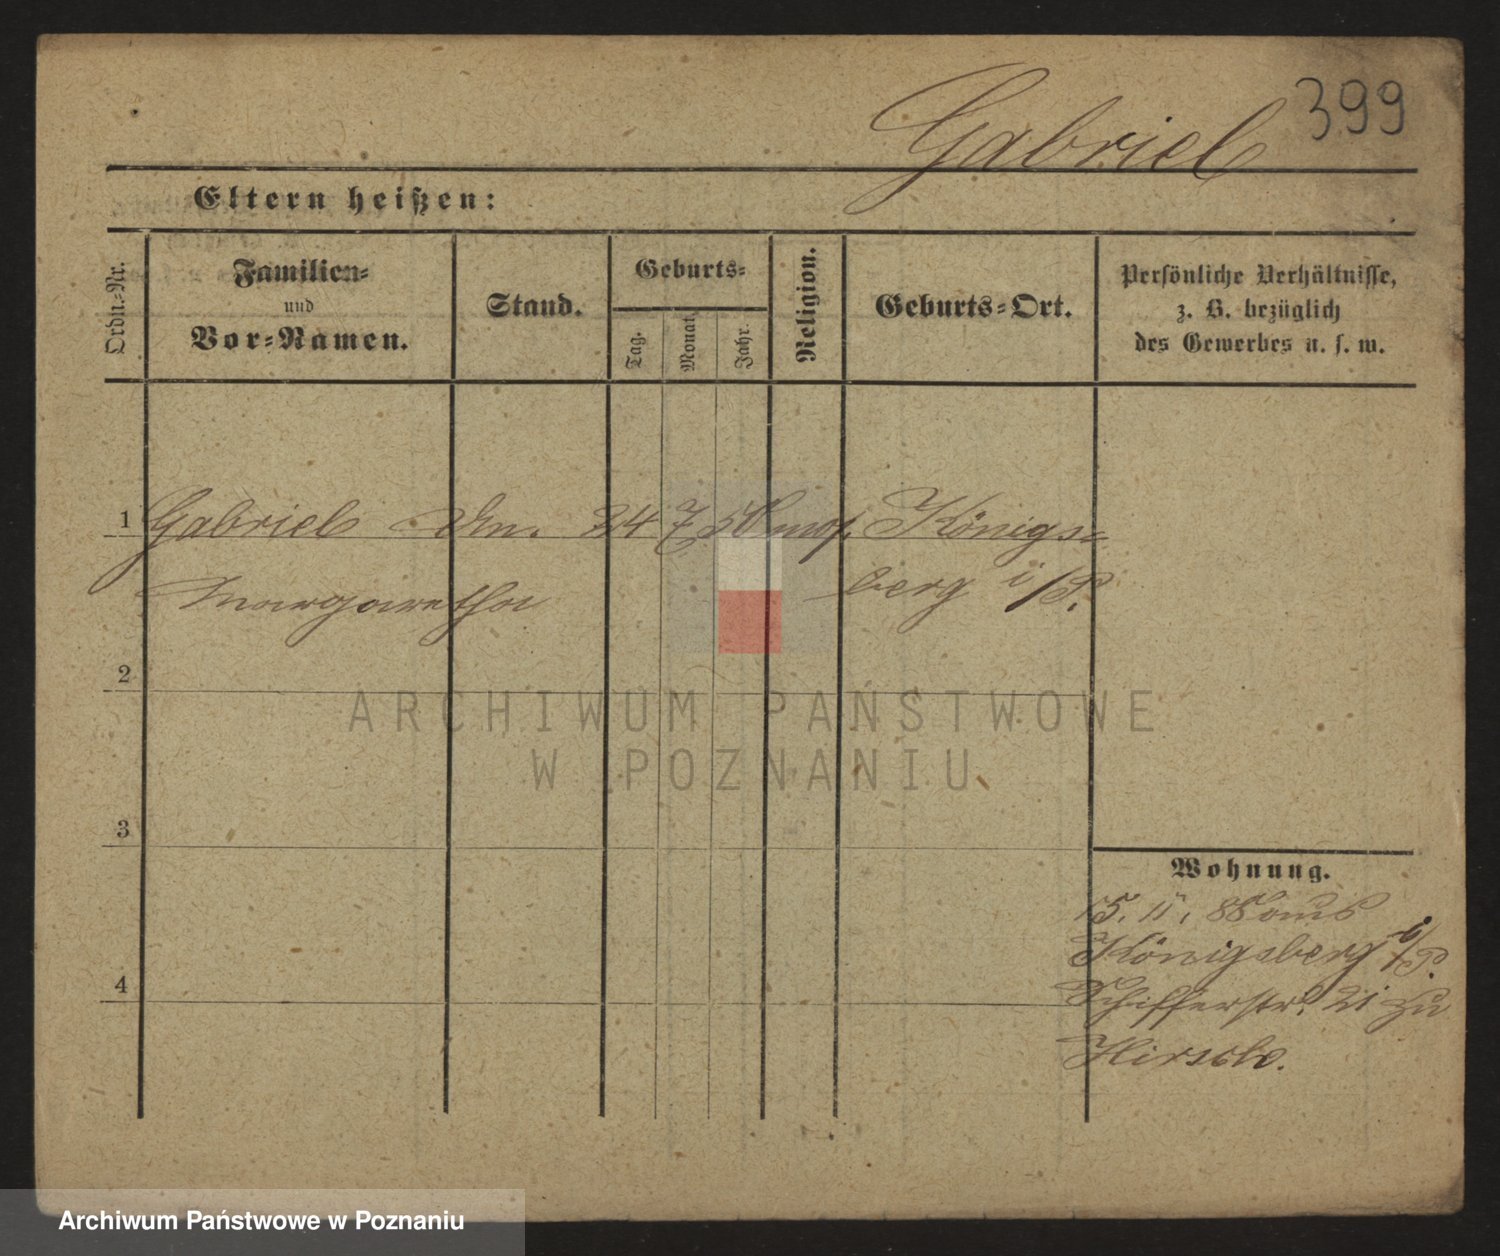 399
Gabriel
Eltern heißen:
Ordn.-Nr.
Familien-
und
Vor-Namen.
Stand.
Geburts-
Tag.
Monat.
Jahr.
Religion.
Geburts-Ort.
Persönliche Verhältnisse,
z. B. bezüglich
des Gewerbes u. s. w.
1 Gabriel 24 7 mos. Königs-
Margaretha berg i/P.
2
ARCHIWUM PAŃSTWOWE
W POZNANIU
3
Wohnung.
15. 11. 88
Königsberg i/P.
4
Schifferstr. 21 zu
Hirsch.
Archiwum Państwowe w Poznaniu